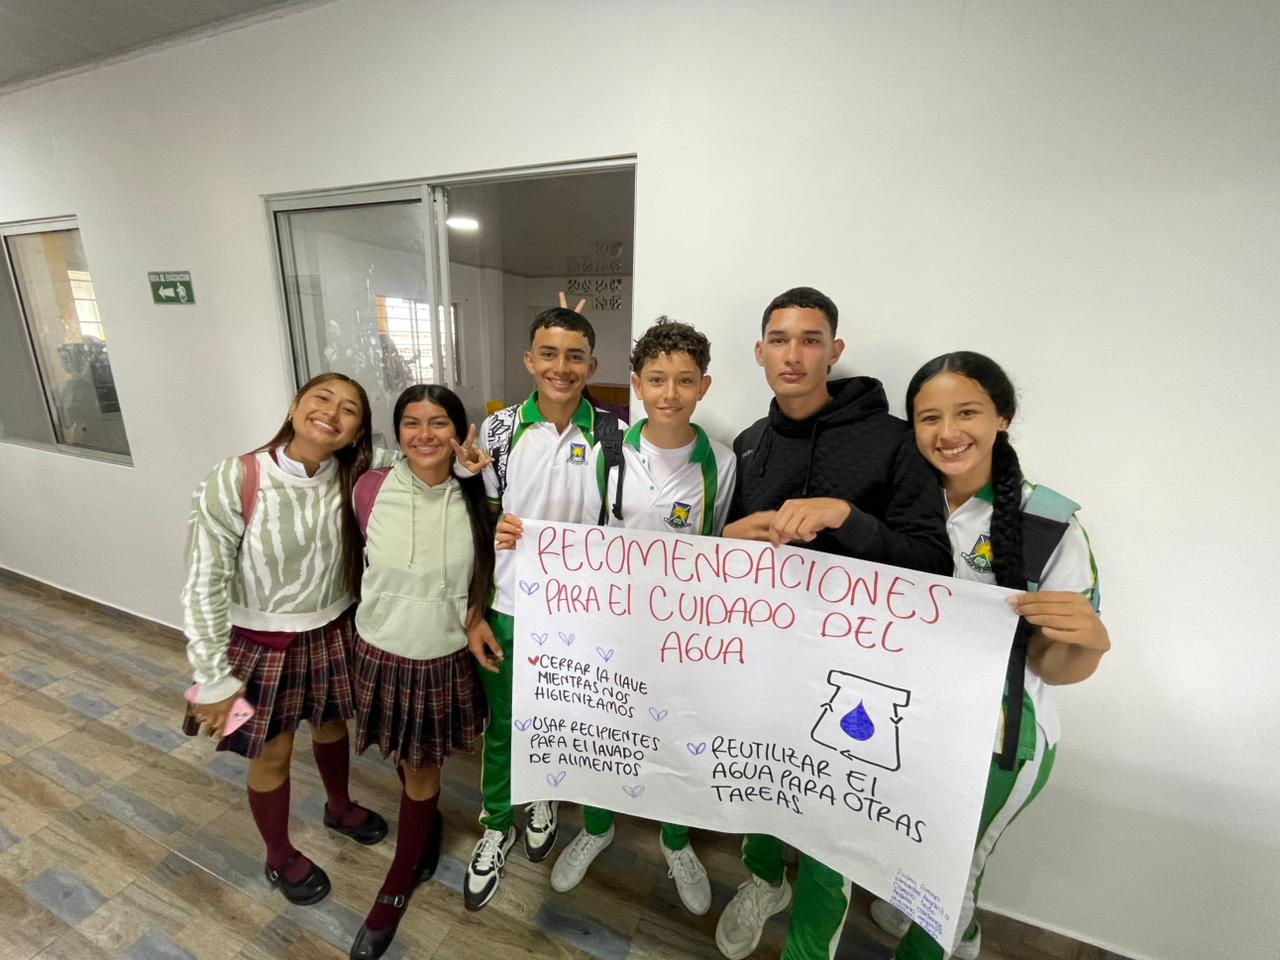 RUTA DE EVACUACION
RECOMENDACIONES
PARA El CUIDADO DEL
AGUA
CERRAR lA llAVE
MIENTRAS NOS
HIGIENIZAMOS
USAR RECIPIENTES
PARA El lAVADO
DE AlIMENTOS
REUTILIZAR El
AGUA PARA OTRAS
TAREAS.